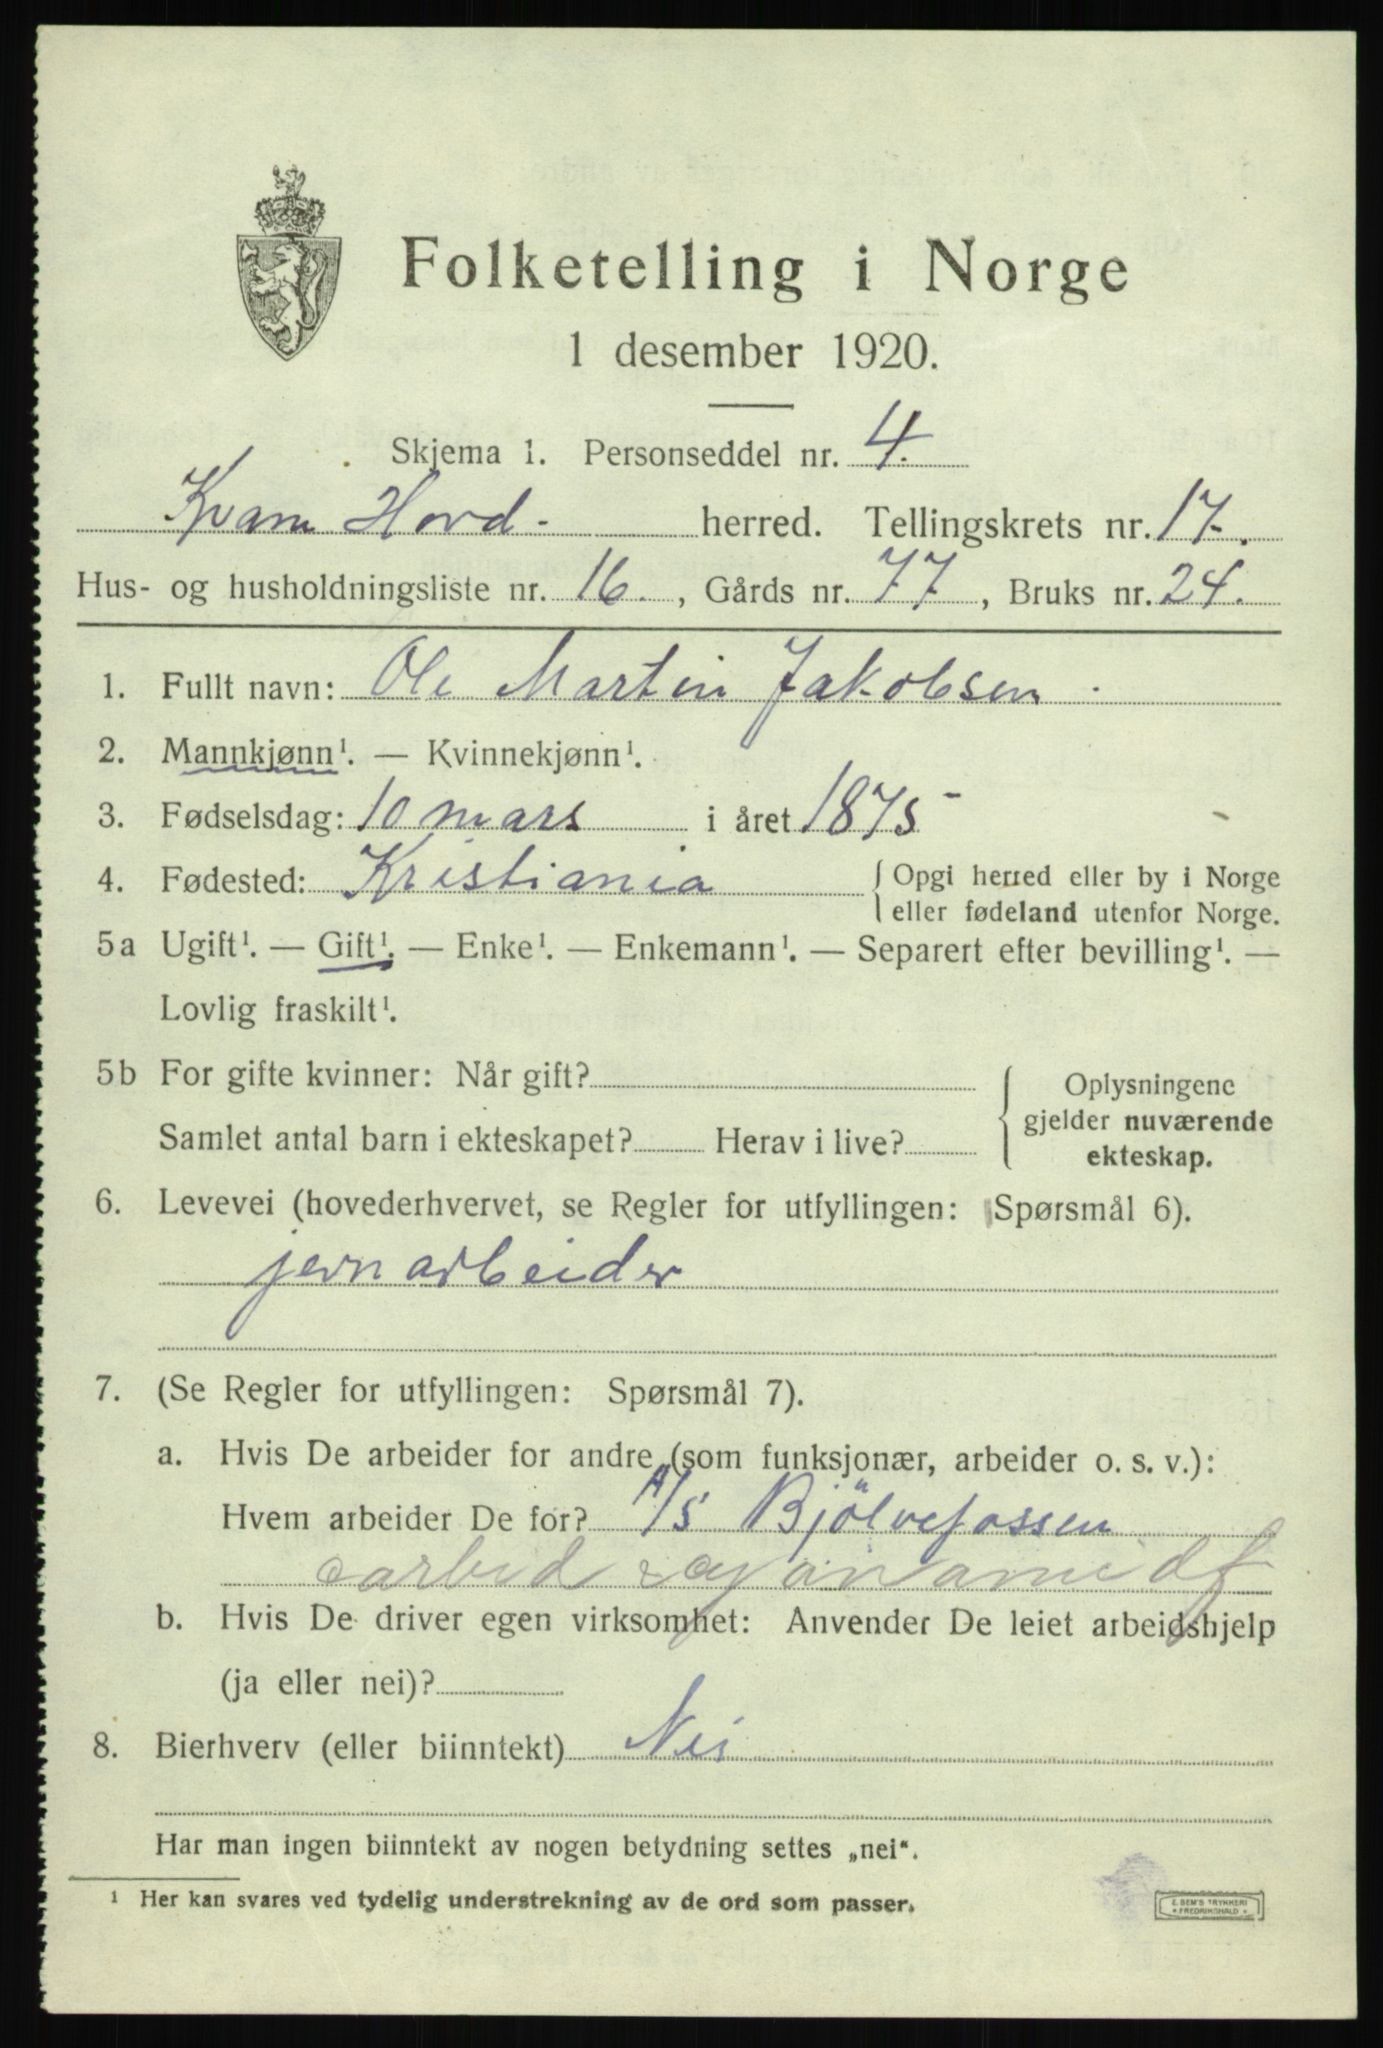 Folketelling i Norge
1 desember 1920.
Skjema 1. Personseddel nr. 4.
Kvam Hord. herred. Tellingskrets nr. 17.
Hus- og husholdningsliste nr. 16., Gårds nr. 77, Bruks nr. 24.
1. Fullt navn: Ole Martin Jakobsen.
2. Mannkjønn¹. — Kvinnekjønn¹.
3. Fødselsdag: 10 mars i året 1875
4. Fødested: Kristiania { Opgi herred eller by i Norge
eller fødeland utenfor Norge.
5a Ugift¹. — Gift¹. — Enke¹. — Enkemann¹. — Separert efter bevilling¹. —
Lovlig fraskilt¹.
5b For gifte kvinner: Når gift?
Samlet antal barn i ekteskapet? Herav i live?
Oplysningene
gjelder nuværende
ekteskap.
6. Levevei (hovederhvervet, se Regler for utfyllingen: Spørsmål 6).
jernarbeider
7. (Se Regler for utfyllingen: Spørsmål 7).
a. Hvis De arbeider for andre (som funksjonær, arbeider o. s. v.):
Hvem arbeider De for? A/S Bjölvefossen
carbid & cyanamidf
b. Hvis De driver egen virksomhet: Anvender De leiet arbeidshjelp
(ja eller nei)?
8. Bierhverv (eller biinntekt) Nei
Har man ingen biinntekt av nogen betydning settes „nei“.
¹ Her kan svares ved tydelig understrekning av de ord som passer.
E. SEM'S TRYKKERI
FREDRIKSHALD